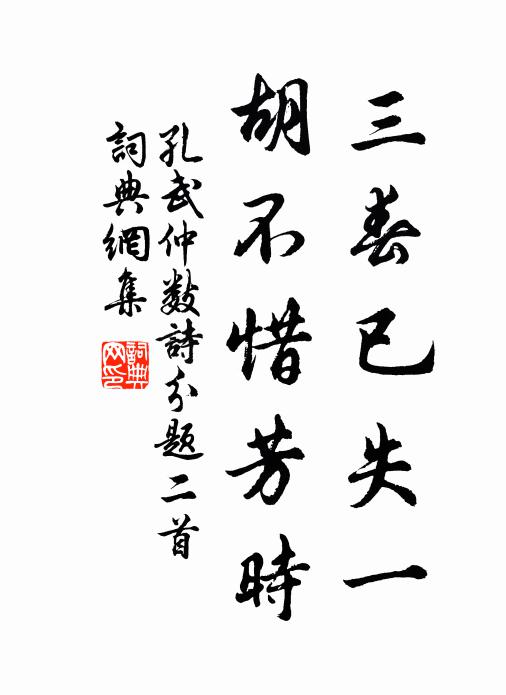 三春已失一
胡不惜芳時
孔武仲數詩分題二首
詞典網集
詞典网印